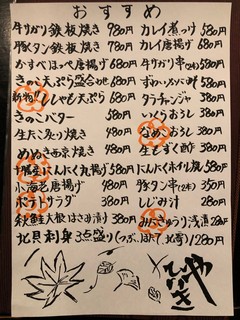 おすすめ
牛サガリ鉄板焼き 980円
豚タン鉄板焼き 780円
かすべほっぺ唐揚げ 680円
きのこ天ぷら盛合せ 680円
ししゃも天ぷら 580円
きのこバター 580円
生たこ炙り焼き 480円
めぬき西京焼き 480円
にんにく丸揚げ 580円
小海老唐揚げ 480円
ポテトサラダ 380円
秋鮭大根はさみ漬け 380円
北貝刺身3点盛り(つぶ、ほたて、北寄) 1280円
カレイ煮つけ 580円
カレイ唐揚げ 680円
牛サガリ串(2本) 580円
ずわいメスパ酢 580円
タラチャンジャ 380円
いくらおろし 380円
なめこおろし 380円
生もずく酢 380円
にんにくホイル焼 580円
豚タン串(2本) 350円
しじみ汁 280円
みがきにしん浅漬 280円